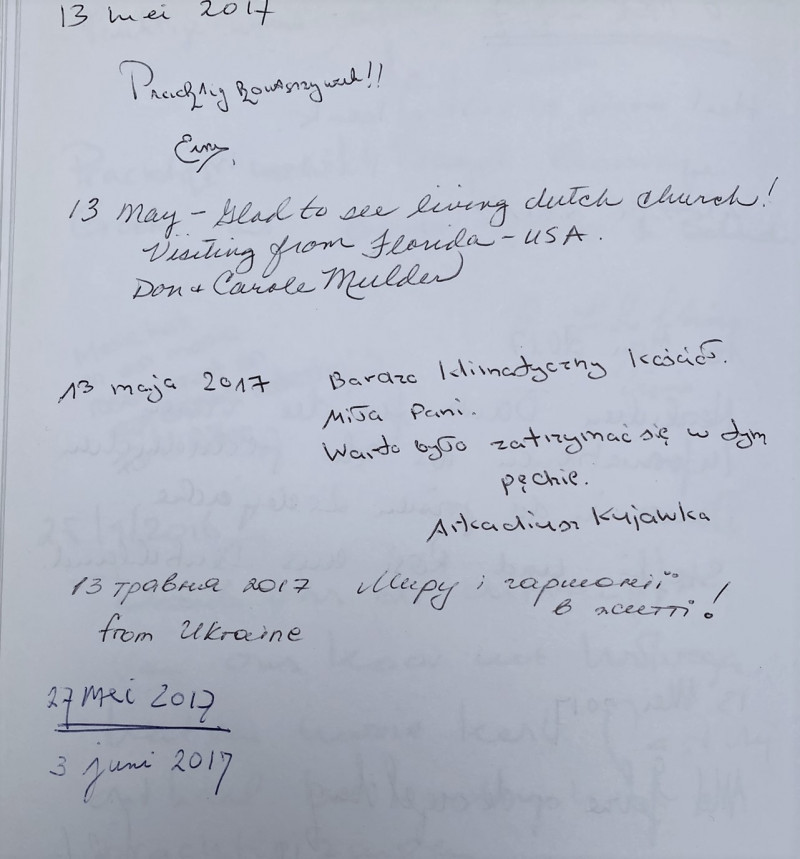 13 mei 2017
Prachtig
13 May - Glad to see living dutch church!
Visiting from Florida - USA.
Don + Carole Mulder
13 maja 2017 Bardzo klimatyczny kościół.
Miła Pani.
Warto było zatrzymać się w tym
pęchie.
Arkadiusz Kujawka
13 травня 2017 Миру і гармонії
в житті!
from Ukraine
27 mei 2017
3 juni 2017